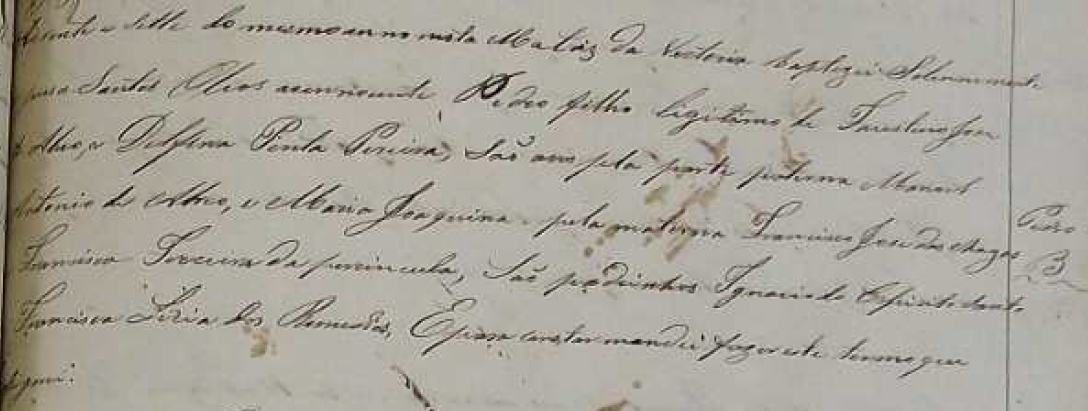 e sette do mesmo anno nesta Matriz da Victoria baptizei Solemnemente
pus os Santos Oleos ao innocente Pedro filho legitimo de Faustino José
de Abreo, e Delfina Penta Pereira, São avos pela parte paterna Manoel
Antonio de Abreo, e Maria Joaquina, pela materna Francisco José das Chagas
Francisca Ferreira da peníncula, São padrinhos Ignacio do Espirito Santo
Francisca Liria dos Remedios, E para constar mandei fazer este termo que
Pedro